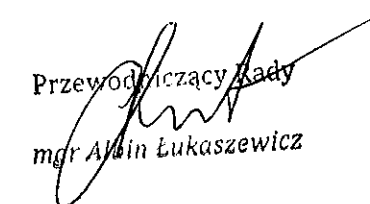 Przewodniczący Rady
mgr Albin Łukaszewicz